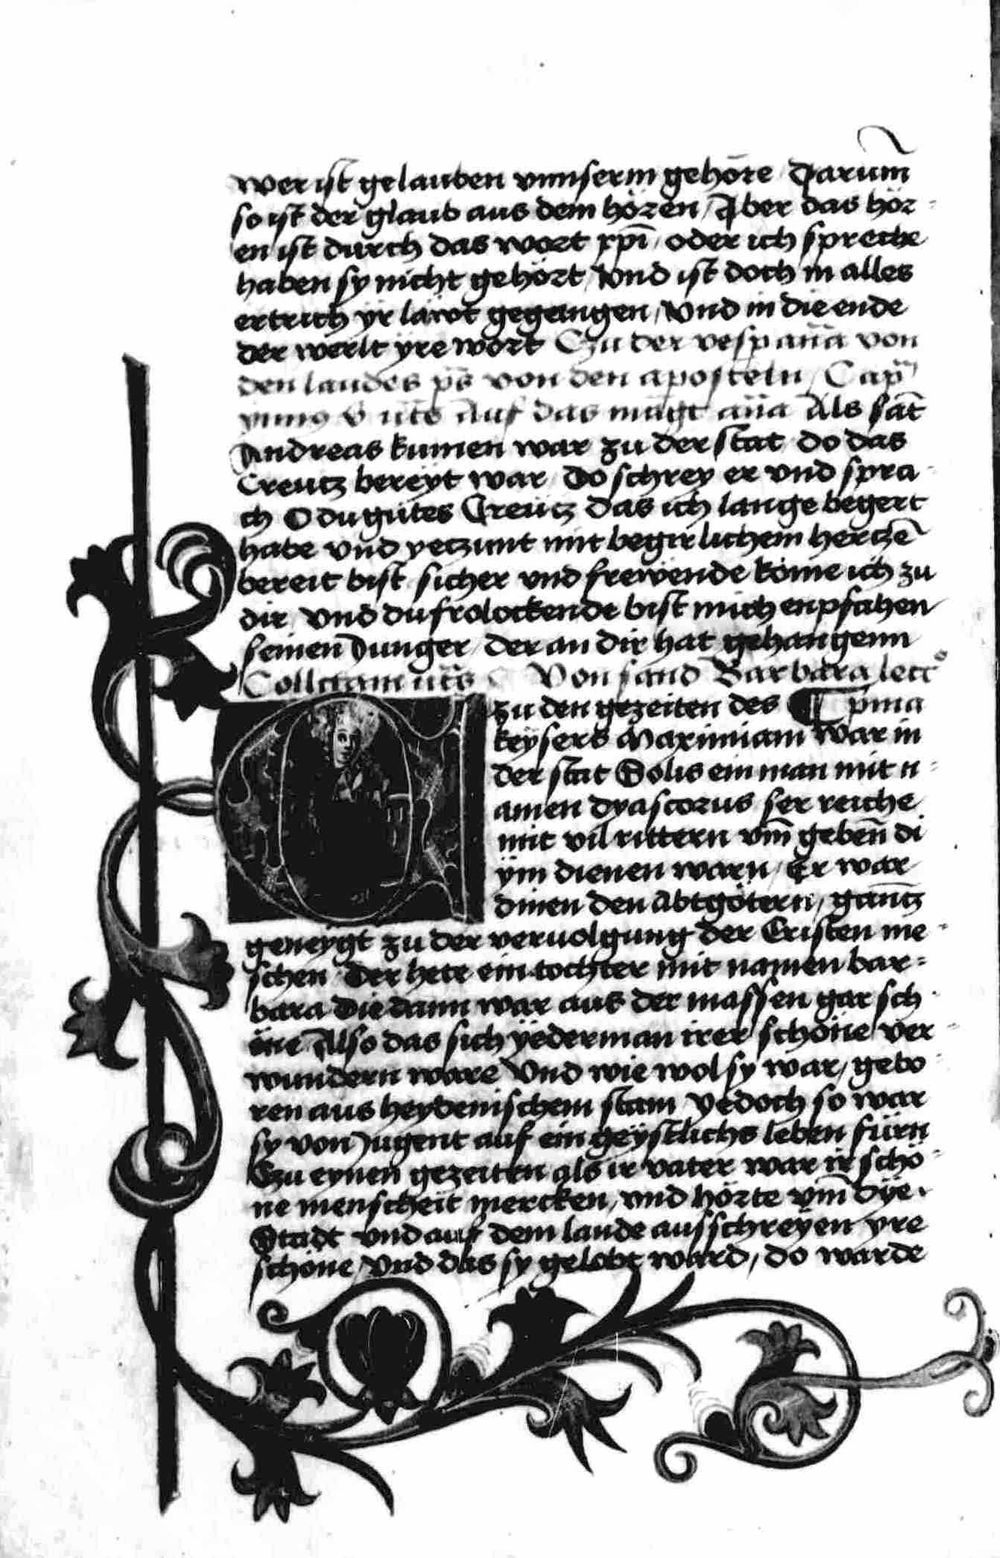 wer ist gelauben vnnserm gehöre / Darum̄
so ist der glaub aus dem hören / Aber das hör-
en ist durch das wort xp̄i / oder ich spreche
haben sy nicht gehört / Vnd ist doch in alles
ertrich yr läwt gegangen / Vnd in die ende
der werlt yre wort Czu der vesp an̄a von
den laudes p̄s von den aposteln / Cap̄
v̄t̄s Auf das maḡt an̄a Als sāt
Andreas kumen war zu der stat do das
Creutz bereyt war / Do schrey er vnd spra-
ch O du gutes Creutz das ich lange begert
habe vnd yeczunt mit begirlichem herczē
bereit bist sicher vnd frewende köme ich zu
dir / vnd du frolockende bist mich enpfahen
seinen Junger / der an dir hat gehangenn
Collctam vt̄s Von sand Barbara lecc̄o
zu den gezeiten des p̄ma
keysers Maximiani war in
der stat Solis ein man mit n-
amen dyascorus ser reiche
mit vil rittern vm̄ geben̄ di
ym dienen warn / Er war
dinen den Abtgötern / gancz
geneygt zu der veruolgung der Cristen me-
schen Der hete ein tochter mit namen bar-
bara die dann war aus der massen gar sch-
öne Also das sich yederman irer schöne ver-
wundern ware Vnd wie wol sy war / gebo
ren aus heydenischem stam Yedoch so war
sy von Jugent auf ein geystlichs leben fürn
Czu eynen gezeiten als ir vater war ir scho-
ne menscheit mercken / vnd hörte vm̄ dye
Stadt vnd auf dem lande ausschreyen yre
schöne / Vnd das sy gelobt ward / do warde